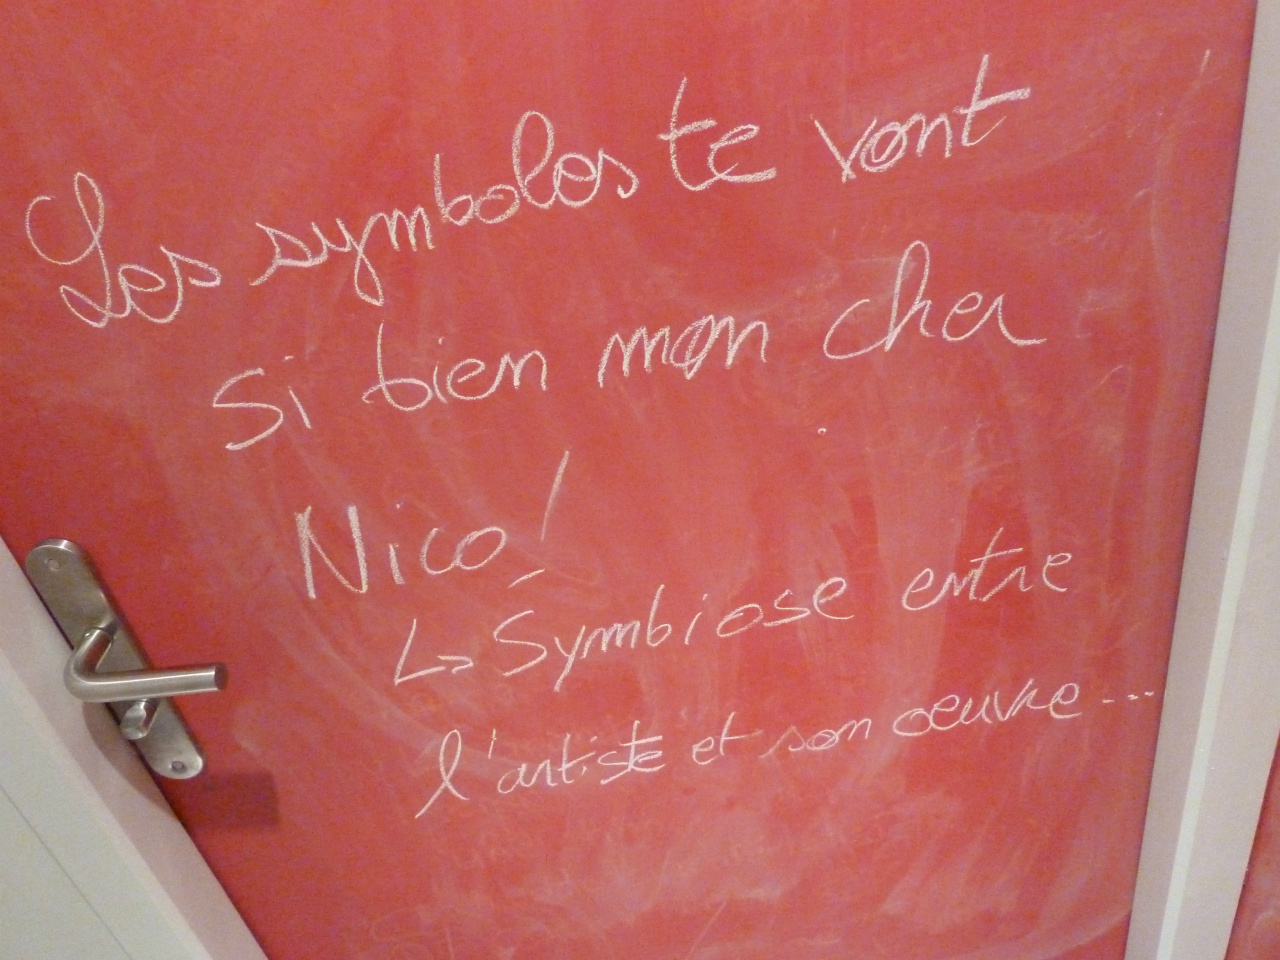 Les symboles te vont
si bien mon cher
Nico !
↳ Symbiose entre
l'artiste et son oeuvre...